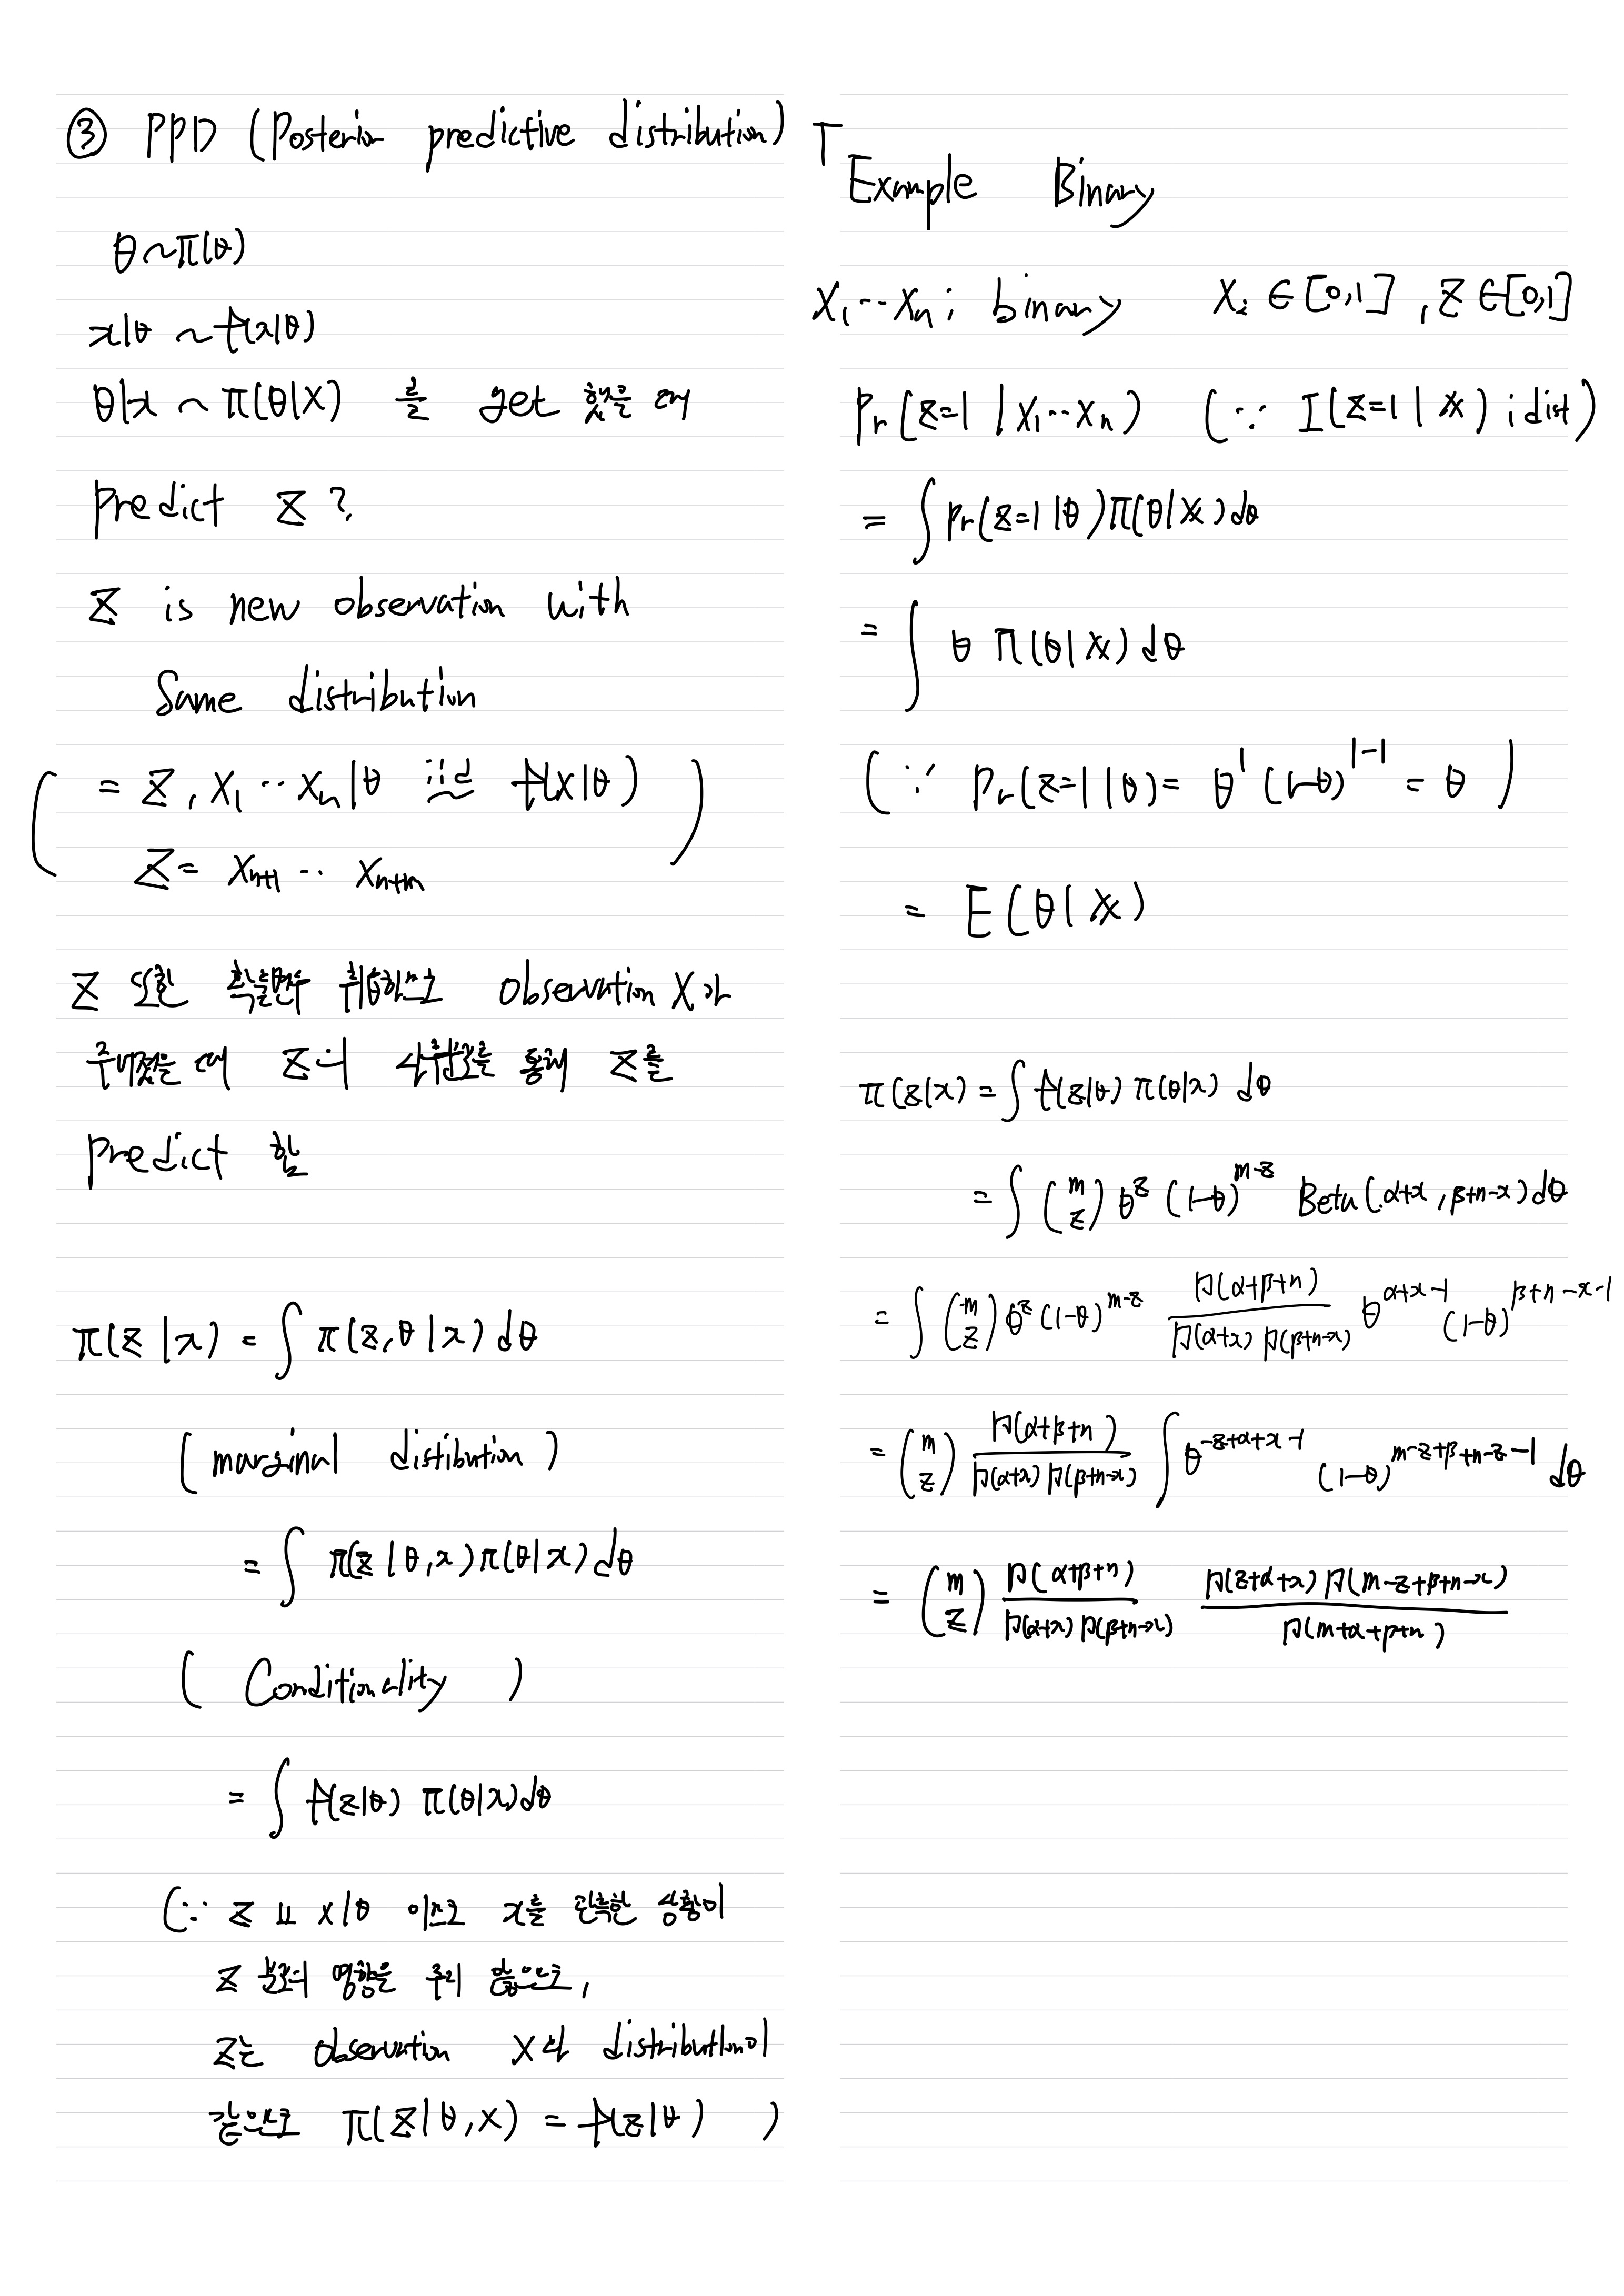 ③ PPD (Posterior predictive distribution)
θ ~ π(θ)
x|θ ~ f(x|θ)
θ|x ~ π(θ|X) 를 get 했을 때
Predict Z ?
Z is new observation with
Same distribution
( = Z, X₁ ⋯ Xₙ|θ iid ~ f(x|θ) )
Z = Xₙ₊₁ ⋯ Xₙ₊ₘ
Z 또한 확률변수 취급함으로 observation X가
주어졌을 때 Z의 사후분포를 통해 Z를
predict 함
π(Z|x) = ∫ π(z,θ|x) dθ
( marginal distibution )
= ∫ π(z|θ,x) π(θ|x) dθ
( Conditionality )
= ∫ f(z|θ) π(θ|x) dθ
(∵ Z ⫫ X|θ 이므로 x를 관측한 상황이
Z 분포의 영향을 주지 않음으로,
Z는 observation X와 distribution이
같으므로 π(Z|θ,x) = f(z|θ) )
Example Binary
X₁ ⋯ Xₙ ; binary Xᵢ ∈ [0,1] , Z ∈ [0,1]
Pr(z=1 | X₁ ⋯ Xₙ) (∵ I(z=1 | X) ; dist)
= ∫ Pr(z=1|θ) π(θ|X) dθ
= ∫ θ π(θ|X) dθ
(∵ Pr(z=1|θ) = θ¹ (1-θ)¹⁻¹ = θ )
= E(θ|X)
π(z|x) = ∫ f(z|θ) π(θ|x) dθ
= ∫ (m z) θ^z (1-θ)^(m-z) Beta(α+x, β+n-x) dθ
= ∫ (m z) θ^z (1-θ)^(m-z) Γ(α+β+n) / Γ(α+x) Γ(β+n-x) θ^(α+x-1) (1-θ)^(β+n-x-1)
= (m z) Γ(α+β+n) / Γ(α+x) Γ(β+n-x) ∫ θ^(z+α+x-1) (1-θ)^(m-z+β+n-z-1) dθ
= (m z) Γ(α+β+n) / Γ(α+x) Γ(β+n-x) Γ(z+α+x) Γ(m-z+β+n-x) / Γ(m+α+β+n)